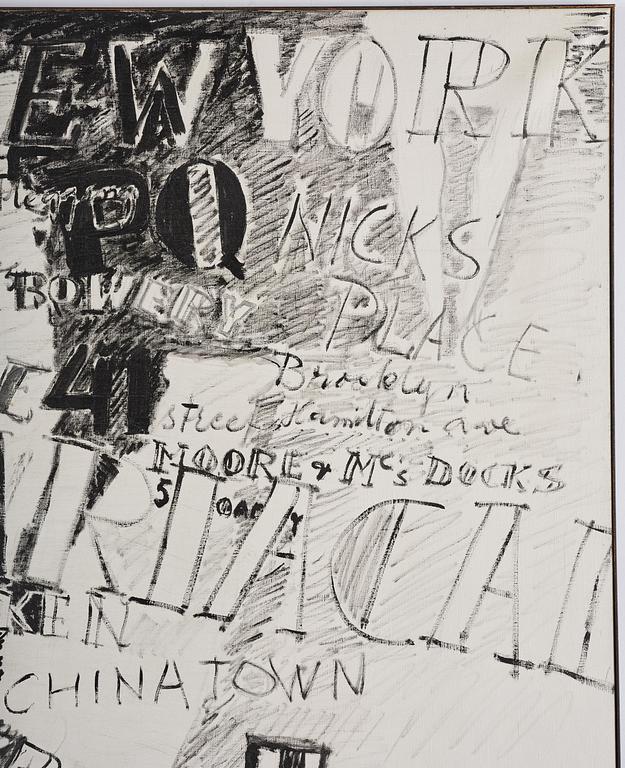 EW YORK
Flemming PQ NICKS
BOWERY PLACE.
41 Brooklyn
street Hamilton ave
MOORE & Mc's DOCKS
5
KEN
CHINATOWN